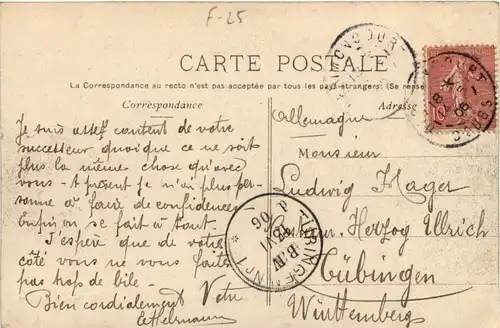 F-25
CARTE POSTALE
La Correspondance au recto n'est pas acceptée par tous les pays étrangers. (Se rense
Correspondance
Adresse
Je suis assez content de votre
successeur quoique ce ne soit
plus la même chose qu'avec
vous - A présent je n'ai plus per-
sonne à faire de confidences
Enfin on se fait à tout.
J'espère que de votre
côté vous ne vous faites
pas trop de bile.
Bien cordialement Votre
Allemagne
Monsieur
Ludwig Mager
Herzog Ulrich
Tübingen
Württemberg